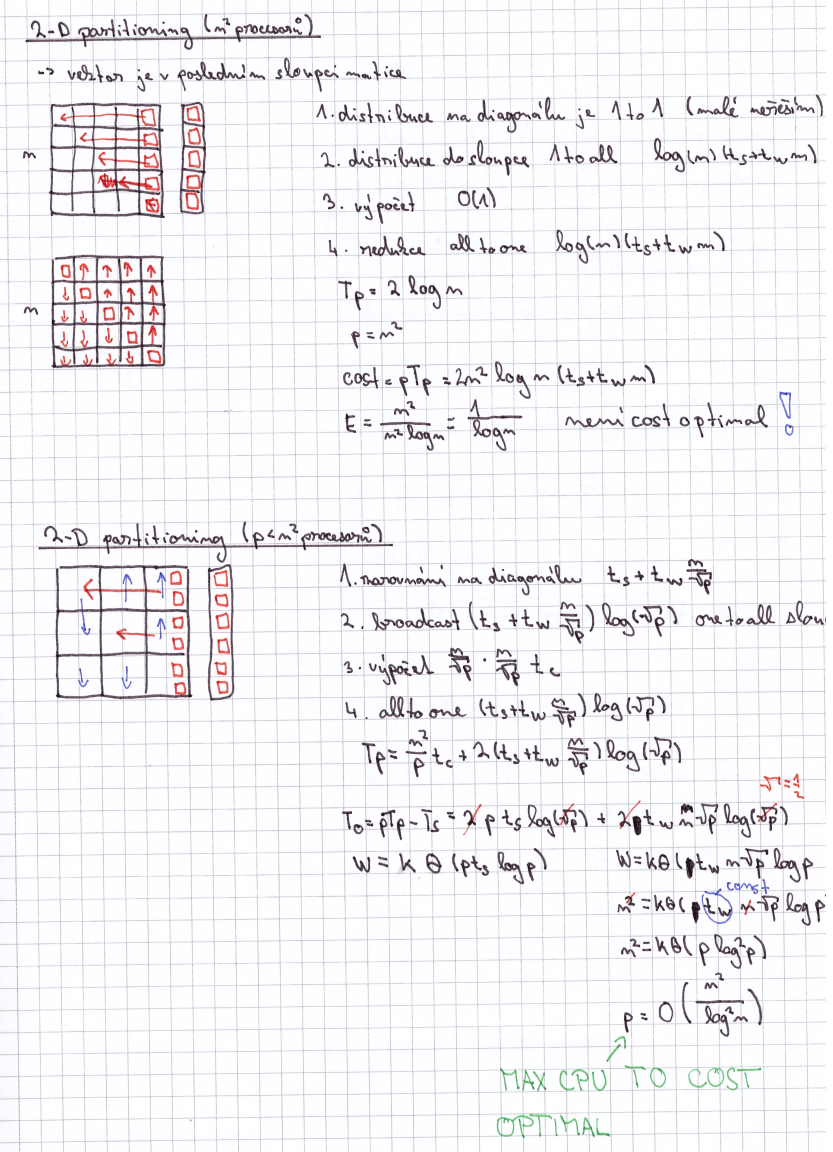 2-D partitioning (n² procesorů)
-> vektor je v posledním sloupci matice
1. distribuce na diagonálu je 1 to 1 (malé neřeším)
n
2. distribuce do sloupce 1 to all log(n)(ts+tw n)
3. výpočet O(1)
4. redukce all to one log(n)(ts+tw n)
Tp = 2 log n
n
p = n²
cost = pTp = 2n² log n (ts+tw n)
E = n²/(n² log n) = 1/log n není cost optimal !
2-D partitioning (p < n² procesorů)
1. zarovnání na diagonálu ts + tw n/√p
2. broadcast (ts + tw n/√p) log(√p) one to all slou
3. výpočet n/√p · n/√p tc
4. all to one (ts+tw n/√p) log(√p)
Tp = n²/p tc + 2(ts+tw n/√p) log(√p)
√ = 1/2
To = pTp - Ts = 2 p ts log(√p) + 2 p tw n √p log(√p)
W = K Θ (pts log p) W = KΘ(ptw n √p log p
const
n² = KΘ( p tw n √p log p
n² = KΘ( p log² p)
p = O ( n² / log² n )
MAX CPU TO COST
OPTIMAL